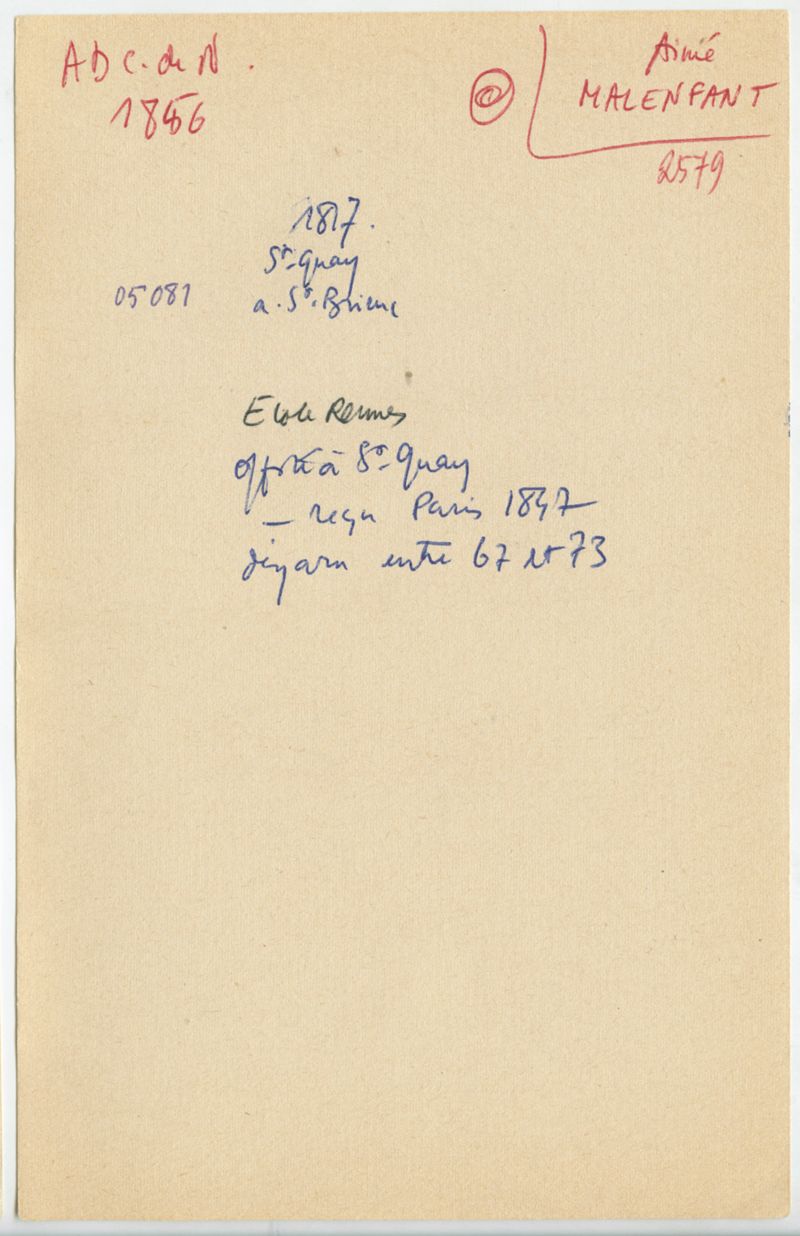 AD C. du N.
1856
@
Aimé
MALENFANT
2579
1817.
St-Quay
05081
a. St. Brieuc
Ecole Rennes
à St-Quay
– reçu Paris 1847
entre 67 et 73